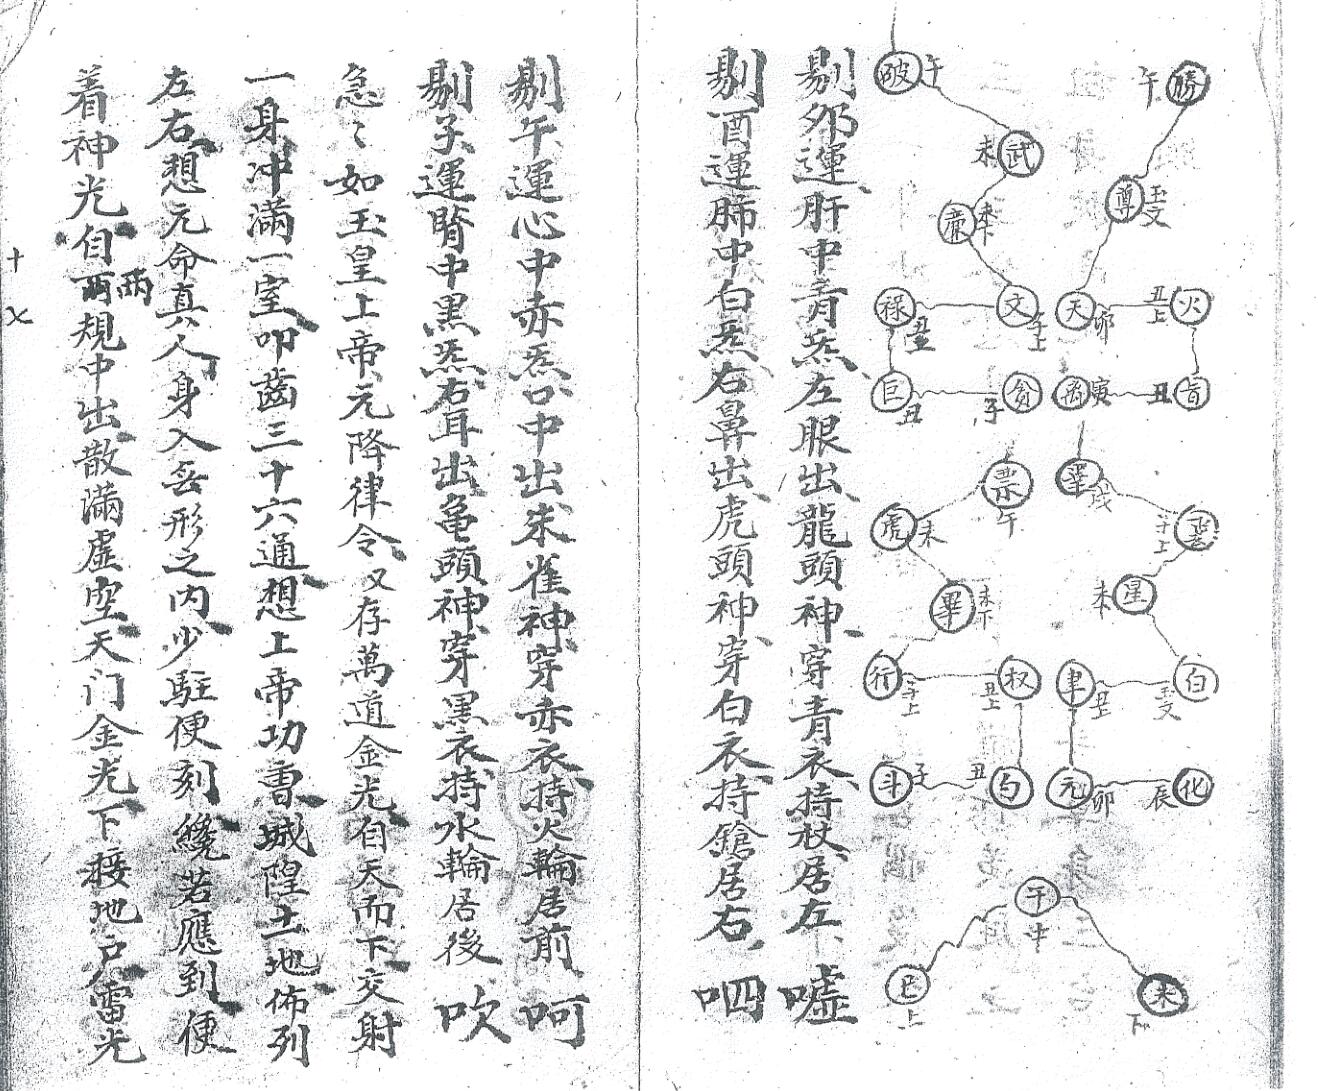 勝 午
尊 玉文
天 卯
火 丑上
禹 庚
旨 丑
破 午
武 未
帝 未下
文 子上
禄
巨 丑
貪 子
戌
星 未
白 玉文
丑上
元 卯
化 辰
票 午
虎 未
畢 未下
行 子上
权 丑上
勾 丑
斗 子
午 中
巳 上
未 下
剔卯運肝中青炁左眼出龍頭神穿青衣持杖居左 嘘
剔酉運肺中白炁右鼻出虎頭神穿白衣持鎗居右 呬
剔午運心中赤炁口中出朱雀神穿赤衣持火輪居前 呵
剔子運腎中黑炁右耳出亀頭神穿黑衣持水輪居後 吹
急〻如玉皇上帝元降律令又存萬道金光自天而下交射
一身冲滿一室叩齒三十六通想上帝功曹城隍土地佈列
左右想元命真人身入無形之内少駐便刻纔若應到便
着神光自兩規中出散滿虚空天门金光下接地户雷光
兩